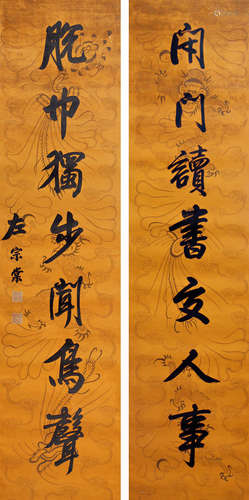 閉門讀書交人事
脫巾獨步聞鳥聲
左宗棠